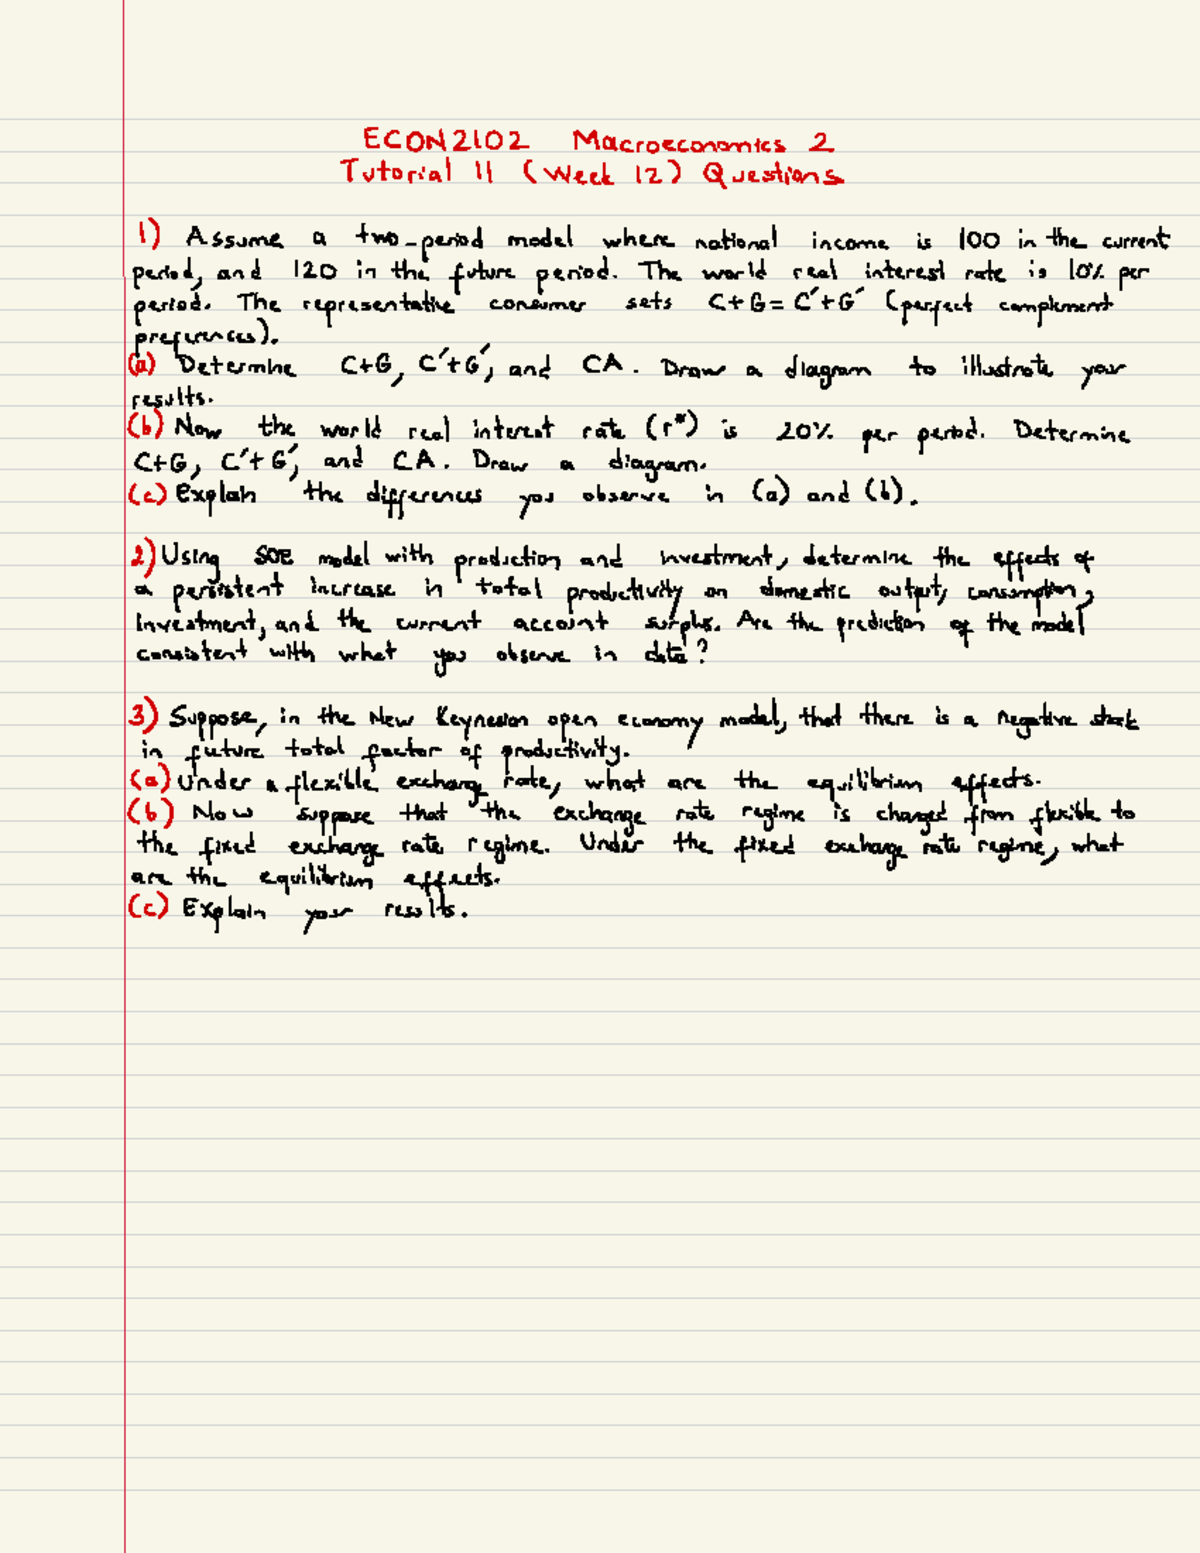 ECON2102 Macroeconomics 2
Tutorial 11 (Week 12) Questions
1) Assume a two-period model where national income is 100 in the current
period, and 120 in the future period. The world real interest rate is 10% per
period. The representative consumer sets C+G = C′+G′ (perfect complement
preferences).
(a) Determine C+G, C′+G′, and CA. Draw a diagram to illustrate your
results.
(b) Now the world real interest rate (r*) is 20% per period. Determine
C+G, C′+G′, and CA. Draw a diagram.
(c) Explain the differences you observe in (a) and (b).
2) Using SOE model with production and investment, determine the effects of
a persistent increase in total productivity on domestic output, consumption,
investment, and the current account surplus. Are the prediction of the model
consistent with what you observe in data?
3) Suppose, in the New Keynesian open economy model, that there is a negative shock
in future total factor of productivity.
(a) Under a flexible exchang rate, what are the equilibrium effects.
(b) Now suppose that the exchange rate regime is changed from flexible to
the fixed exchange rate regime. Under the fixed exchange rate regime, what
are the equilibrium effects.
(c) Explain your results.